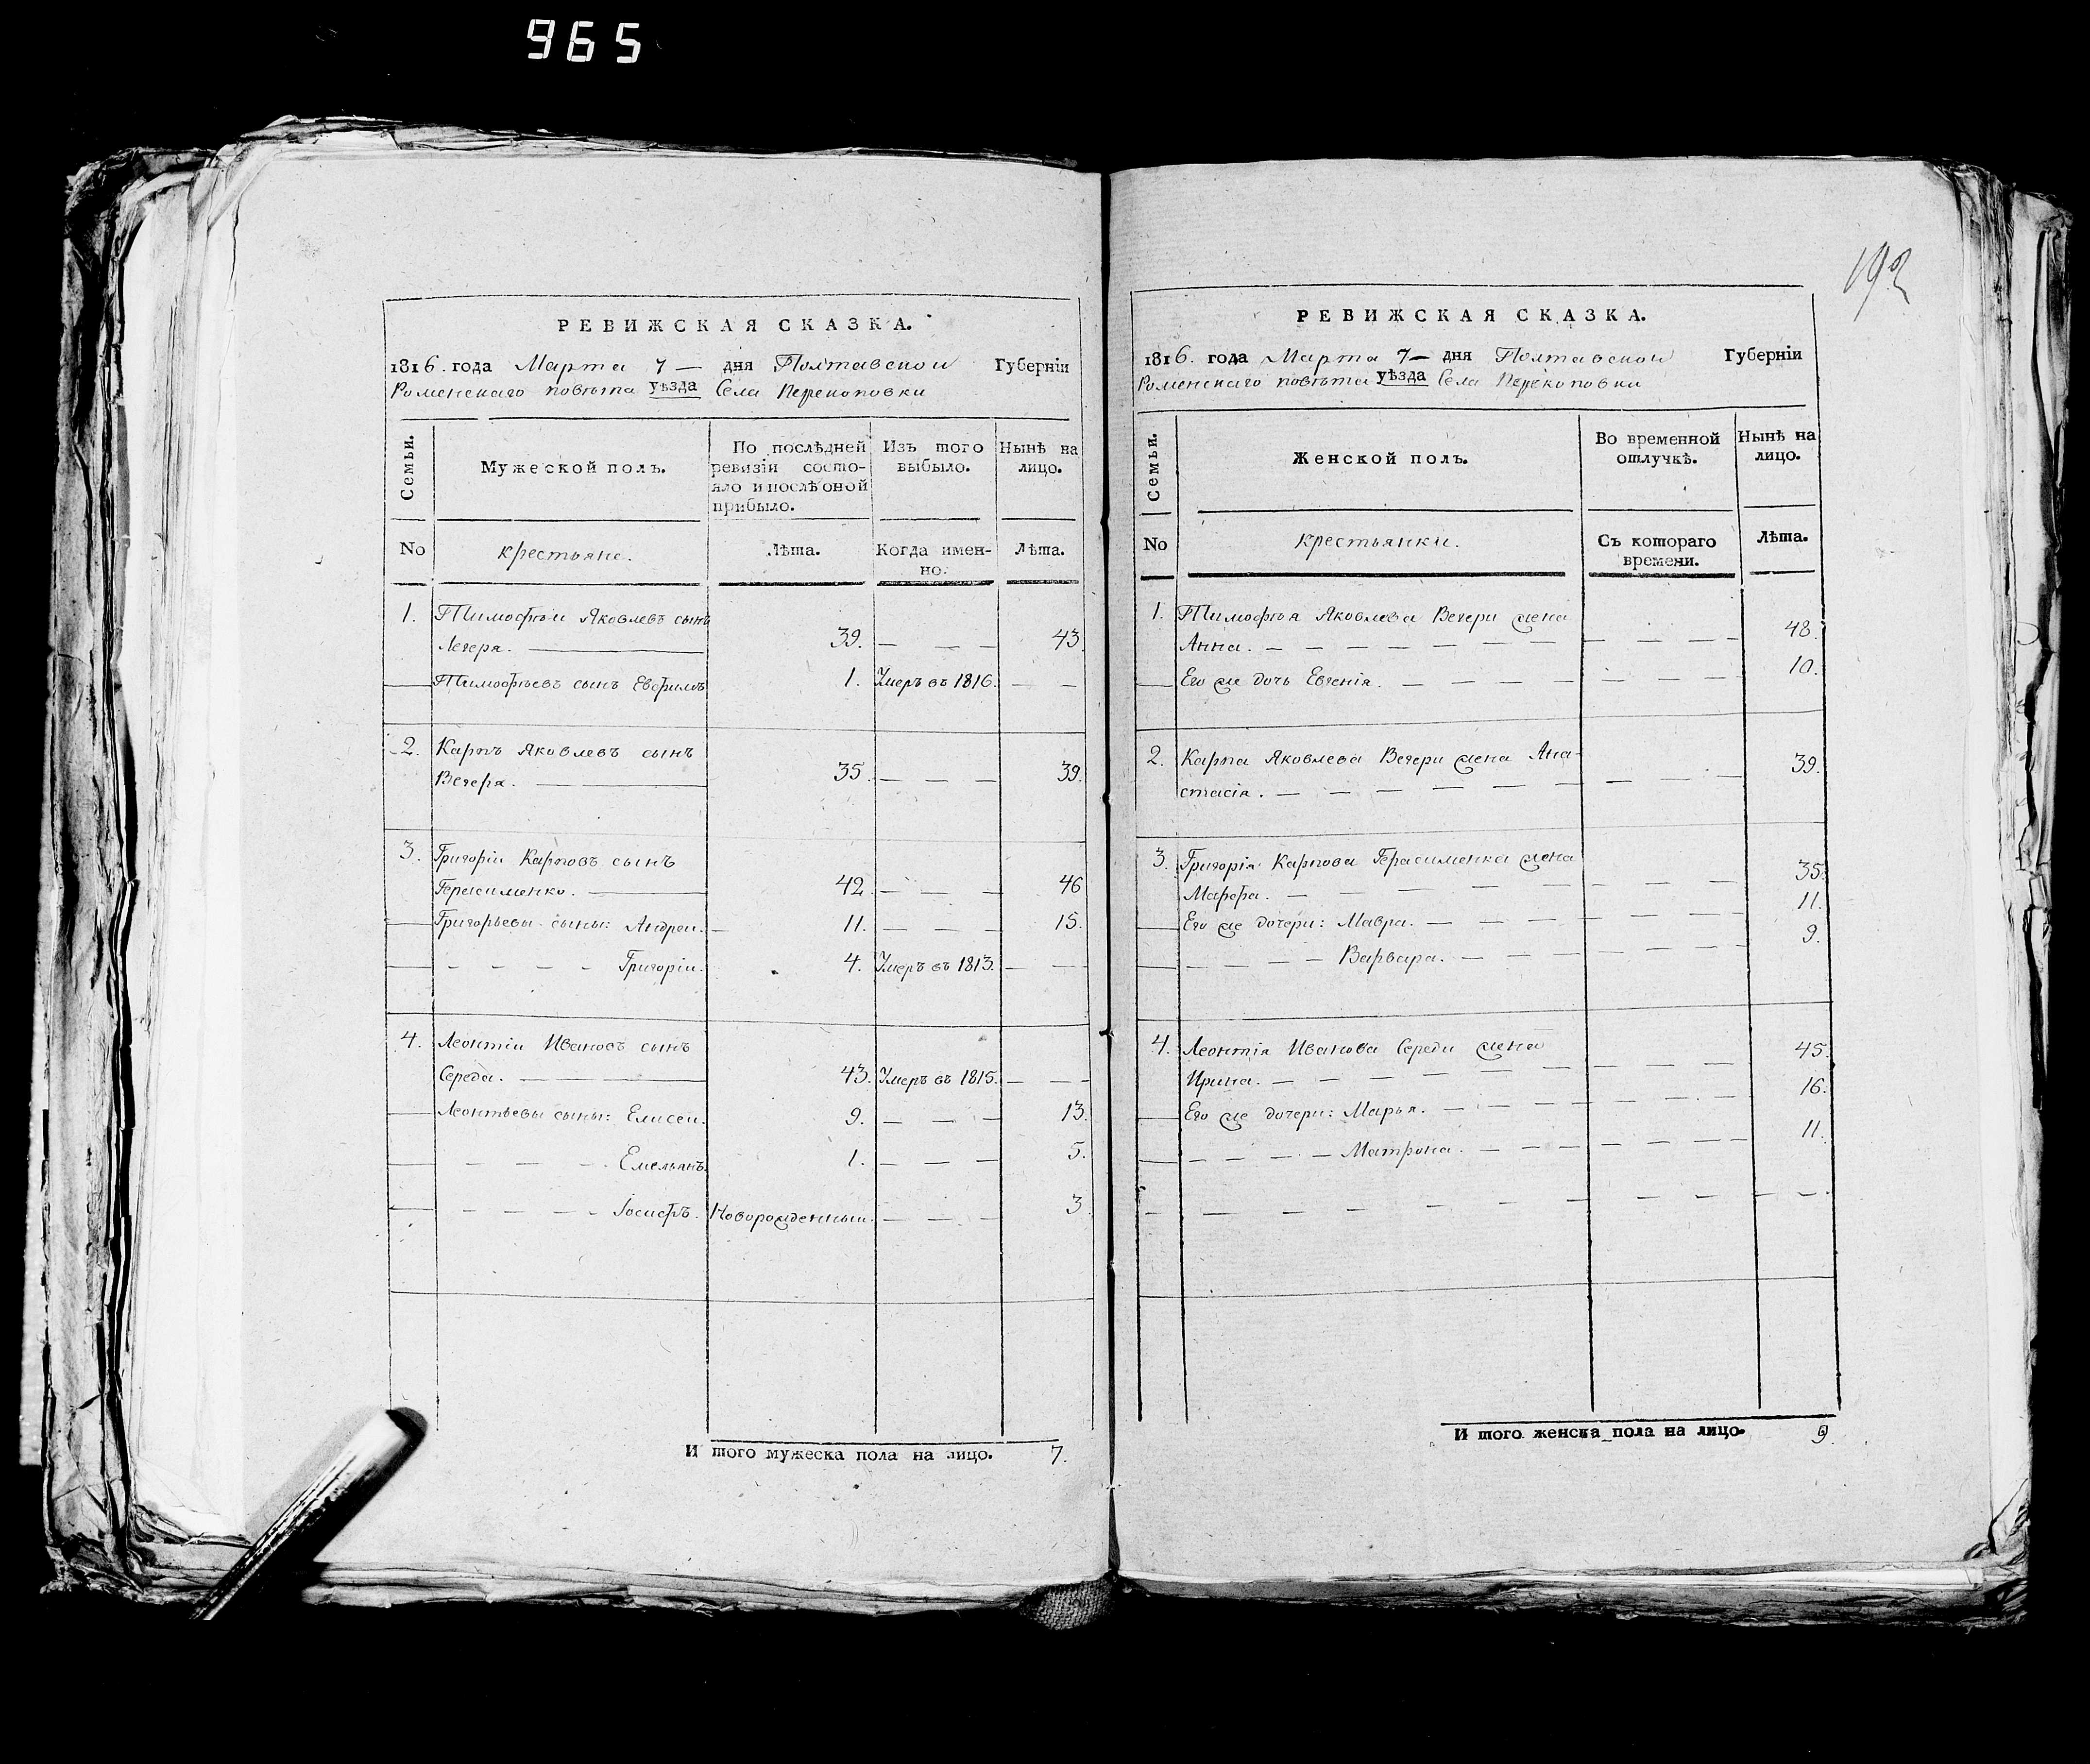 965
РЕВИЖСКАЯ СКАЗКА.
1816. года Марта 7 — дня Полтавской Губерніи
Роменскаго повѣта уѣзда Села Перекоповки
Семьи.
Мужеской полъ.
По послѣдней ревизіи состояло и послѣ оной прибыло.
Изъ того выбыло.
Нынѣ на лицо.
No
крестьяне.
Лѣта.
Когда именно.
Лѣта.
1. Тимофѣй Яковлевъ сынъ
Вечеря. 39. — — — 43
Тимофѣевъ сынъ Евфимъ 1. Умеръ въ 1816. — —
2. Карпъ Яковлевъ сынъ
Вечеря. 35. — — — 39.
3. Григорій Карповъ сынъ
Герасименко. 42. — — — 46
Григорьевы сыны: Андрей. 11. — — — 15.
— — — — Григорій. 4. Умеръ въ 1813. — —
4. Леонтій Ивановъ сынъ
Середа. 43. Умеръ въ 1815. — —
Леонтьевы сыны: Елисей. 9. — — — 13.
— — — Емельянъ. 1. — — — 5.
— — — — Іосифъ. Новорожденный. — — — 3.
И того мужеска пола на лицо. 7.
192
РЕВИЖСКАЯ СКАЗКА.
1816. года Марта 7— дня Полтавской Губерніи
Роменскаго повѣта уѣзда Села Перекоповки
Семьи.
Женской полъ.
Во временной отлучкѣ.
Нынѣ на лицо.
No
крестьянки.
Съ котораго времени.
Лѣта.
1. Тимофѣя Яковлева Вечери жена
Анна. — — — — — — 48.
Его же дочь Евгенія. — — — — 10.
2. Карпа Яковлева Вечери жена Ана-
стасія. — — — — — — 39.
3. Григорія Карпова Герасименка жена
Марфа. — — — — — 35.
Его же дочери: Мавра. — — — 11.
— — — — — Варвара. — — — 9.
4. Леонтія Иванова Середи жена
Ирина. — — — — — — 45.
Его же дочери: Марья. — — — 16.
— — — — — Матрона. — — — 11.
И того женска пола на лицо. 9.